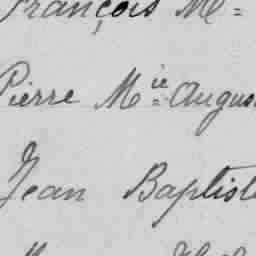 François M
Pierre Mie Augus
Jean Baptist